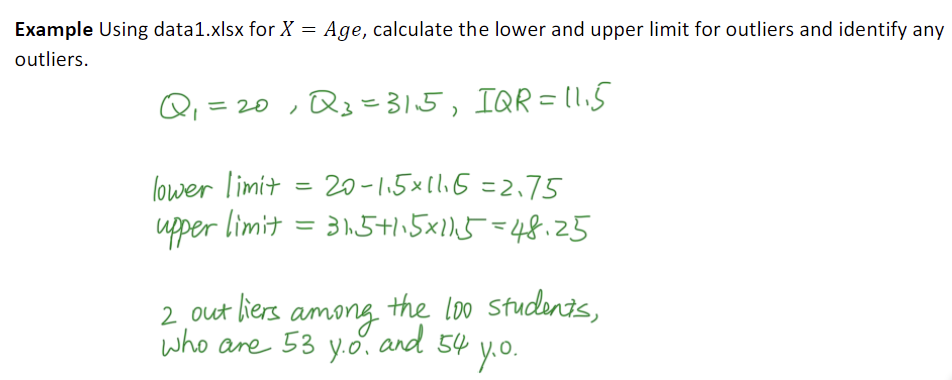 Example Using data1.xlsx for X = Age, calculate the lower and upper limit for outliers and identify any
outliers.
Q₁ = 20 , Q₃ = 31.5 , IQR = 11.5
lower limit = 20 - 1.5 × 11.5 = 2.75
upper limit = 31.5 + 1.5 × 11.5 = 48.25
2 outliers among the 100 students,
who are 53 y.o. and 54 y.o.